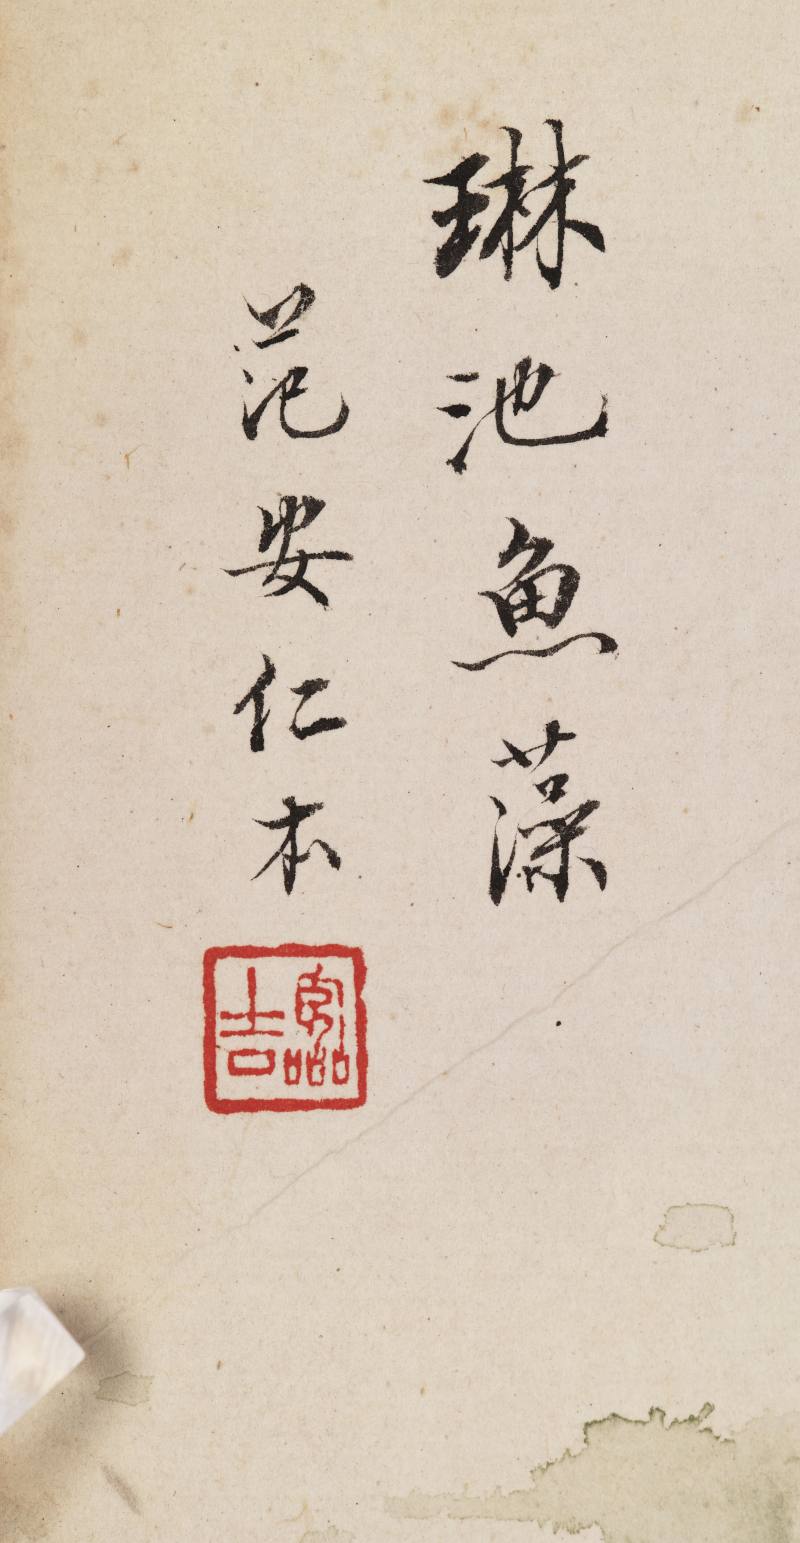 琳池魚藻
范安仁本